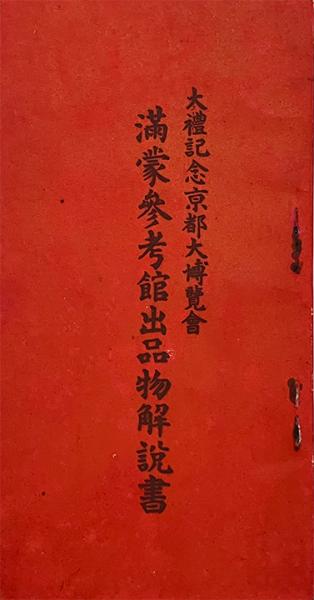 大禮記念京都大博覽會
滿蒙參考館出品物解說書